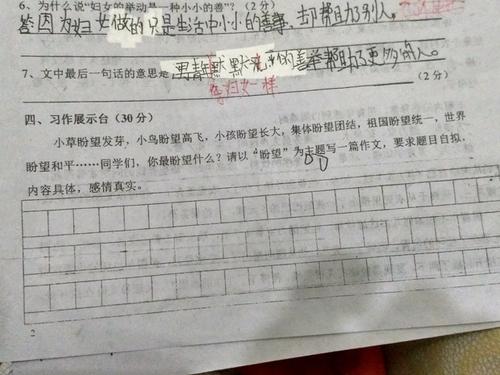 6、为什么说“妇女的举动是一种小小的善”？（2分）
答因为妇女做的只是生活中小小的善举，却帮助了别人。
7、文中最后一句话的意思是男青年默默无声的善举帮助了更多的人。
和妇女一样
（2分）
四、习作展示台（30分）
小草盼望发芽，小鸟盼望高飞，小孩盼望长大，集体盼望团结，祖国盼望统一，世界
盼望和平……同学们，你最盼望什么？请以“盼望”为主题写一篇作文，要求题目自拟，
内容具体，感情真实。
2